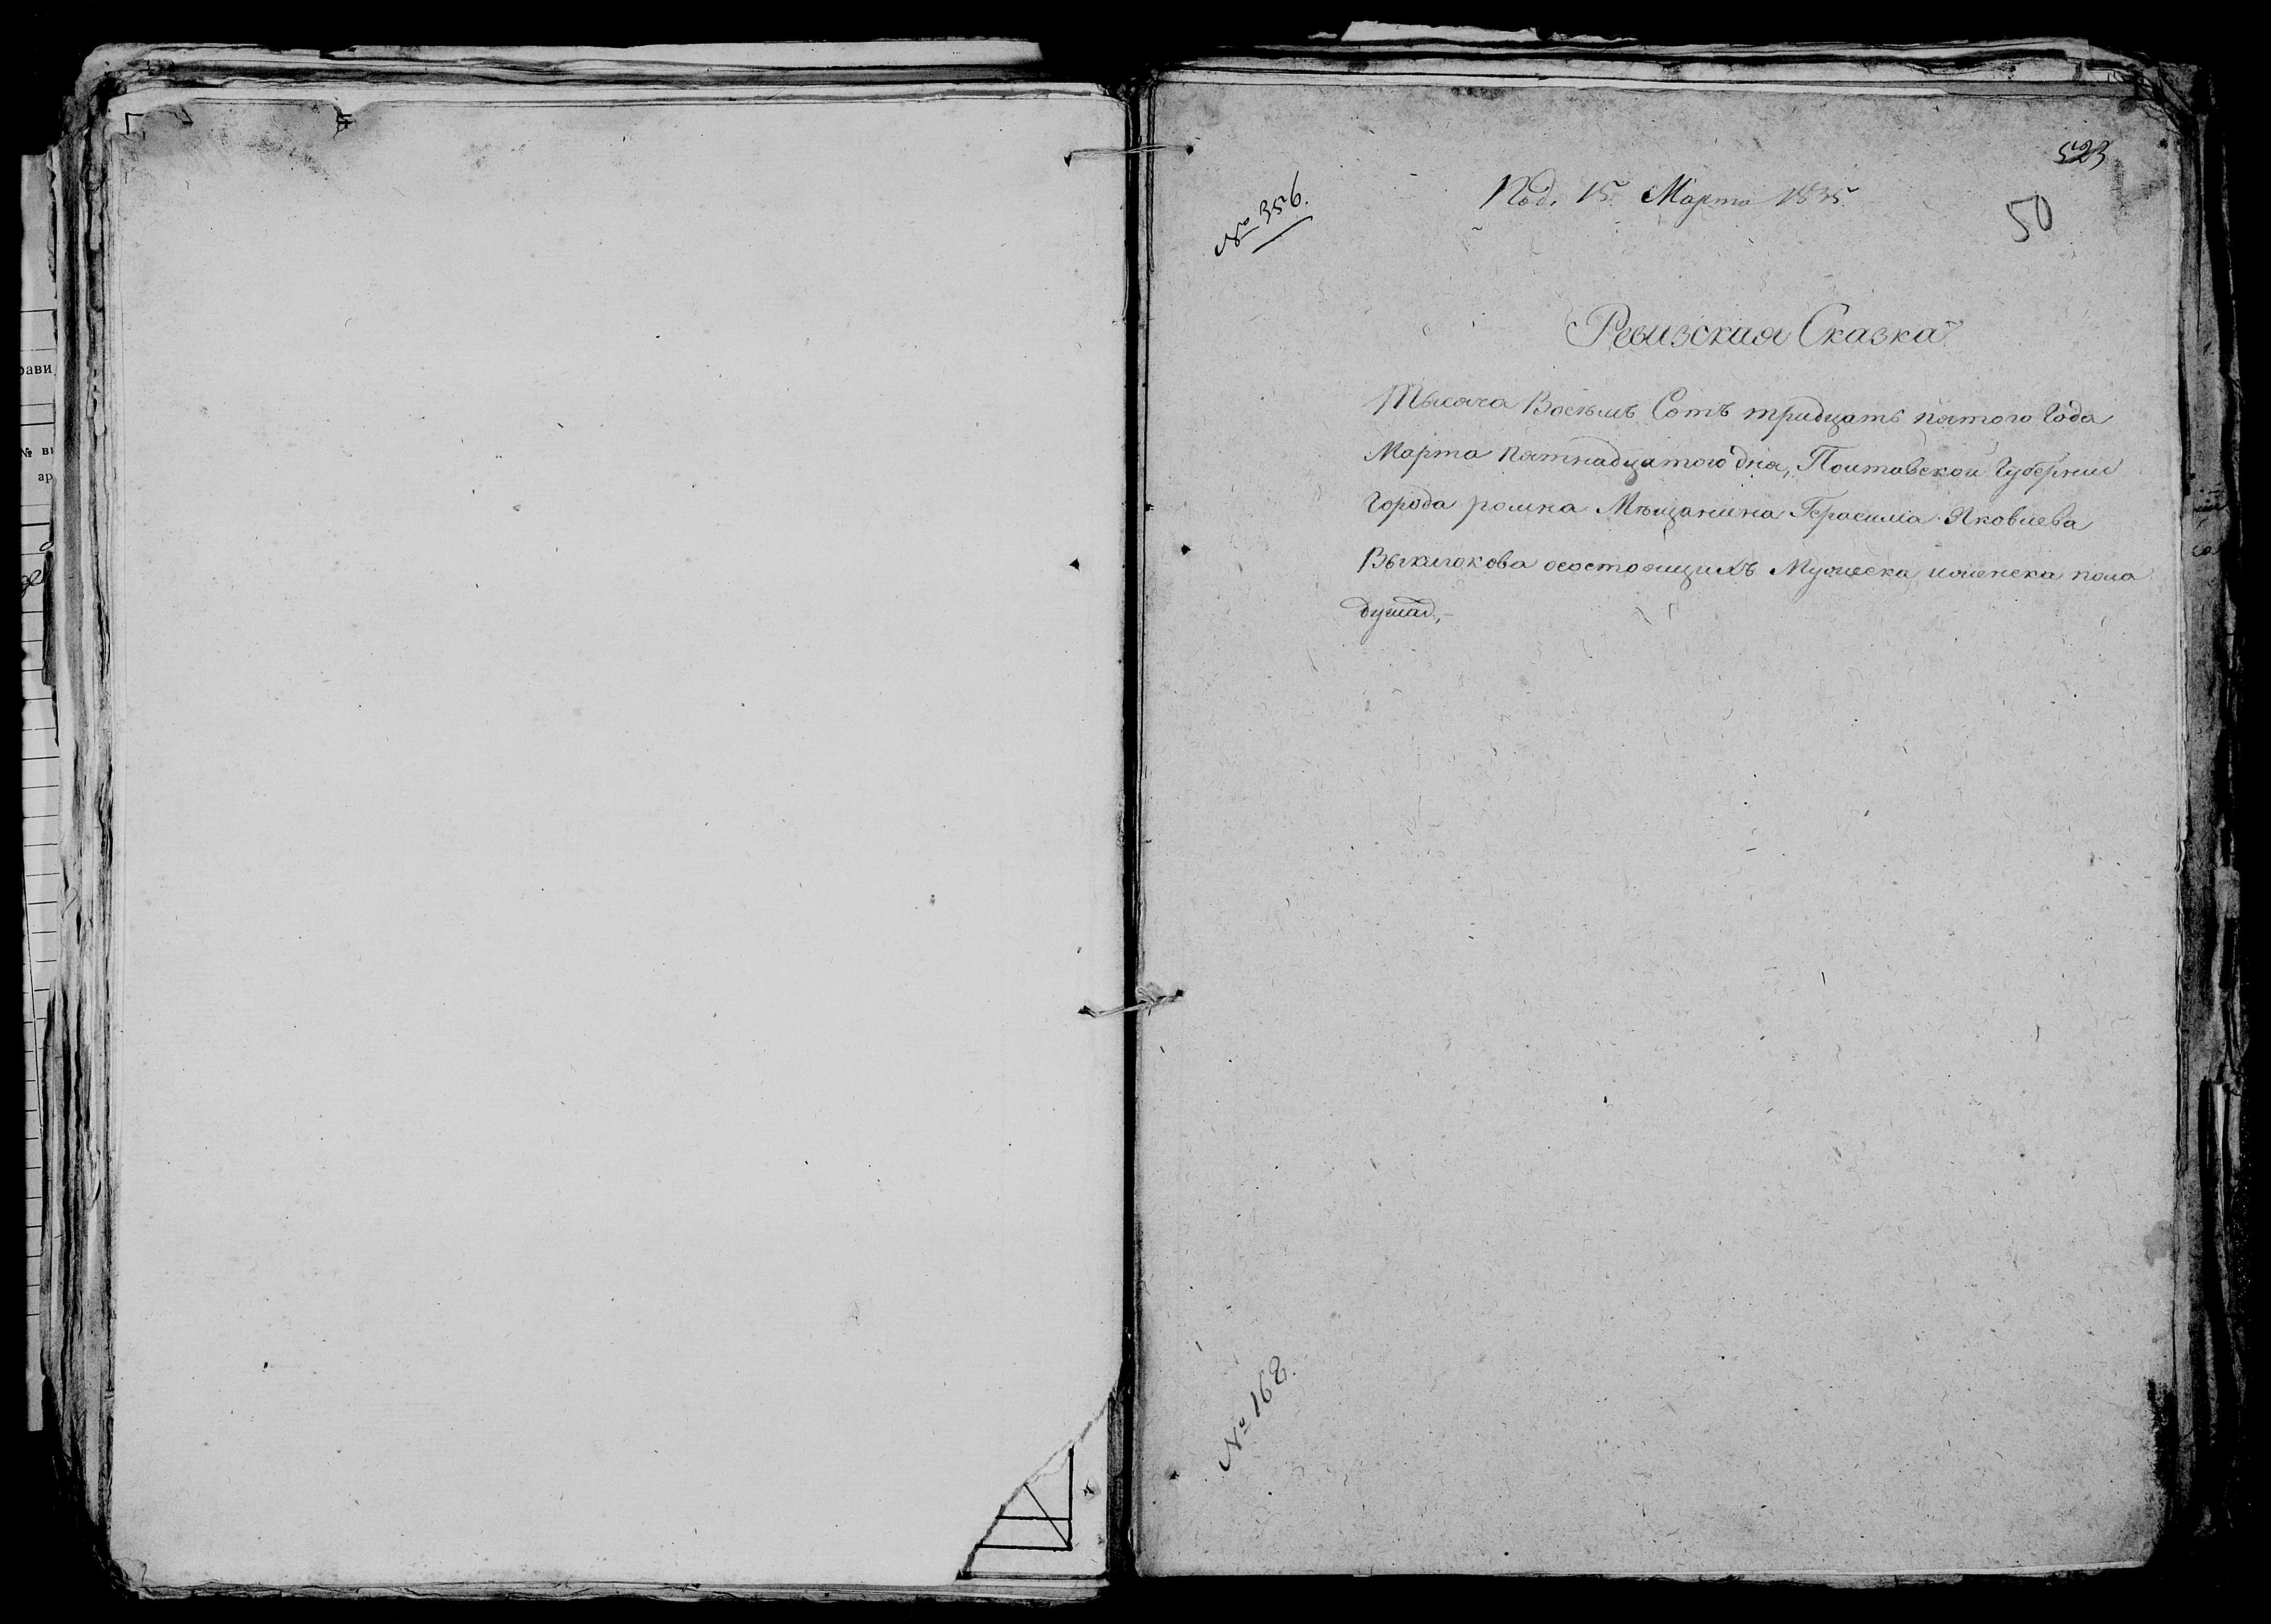 523
№ 356.
Под. 15 Марта 1835
50
Ревизская Сказка
Тысяча Восемь Сотъ тридцать пятого Года
Марта пятнадцатого дня, Полтавской Губернии
Города ромна Мѣщанина Герасима Яковлева
осостоящихъ Мужеска иженска пола
душах,–
№ 168.